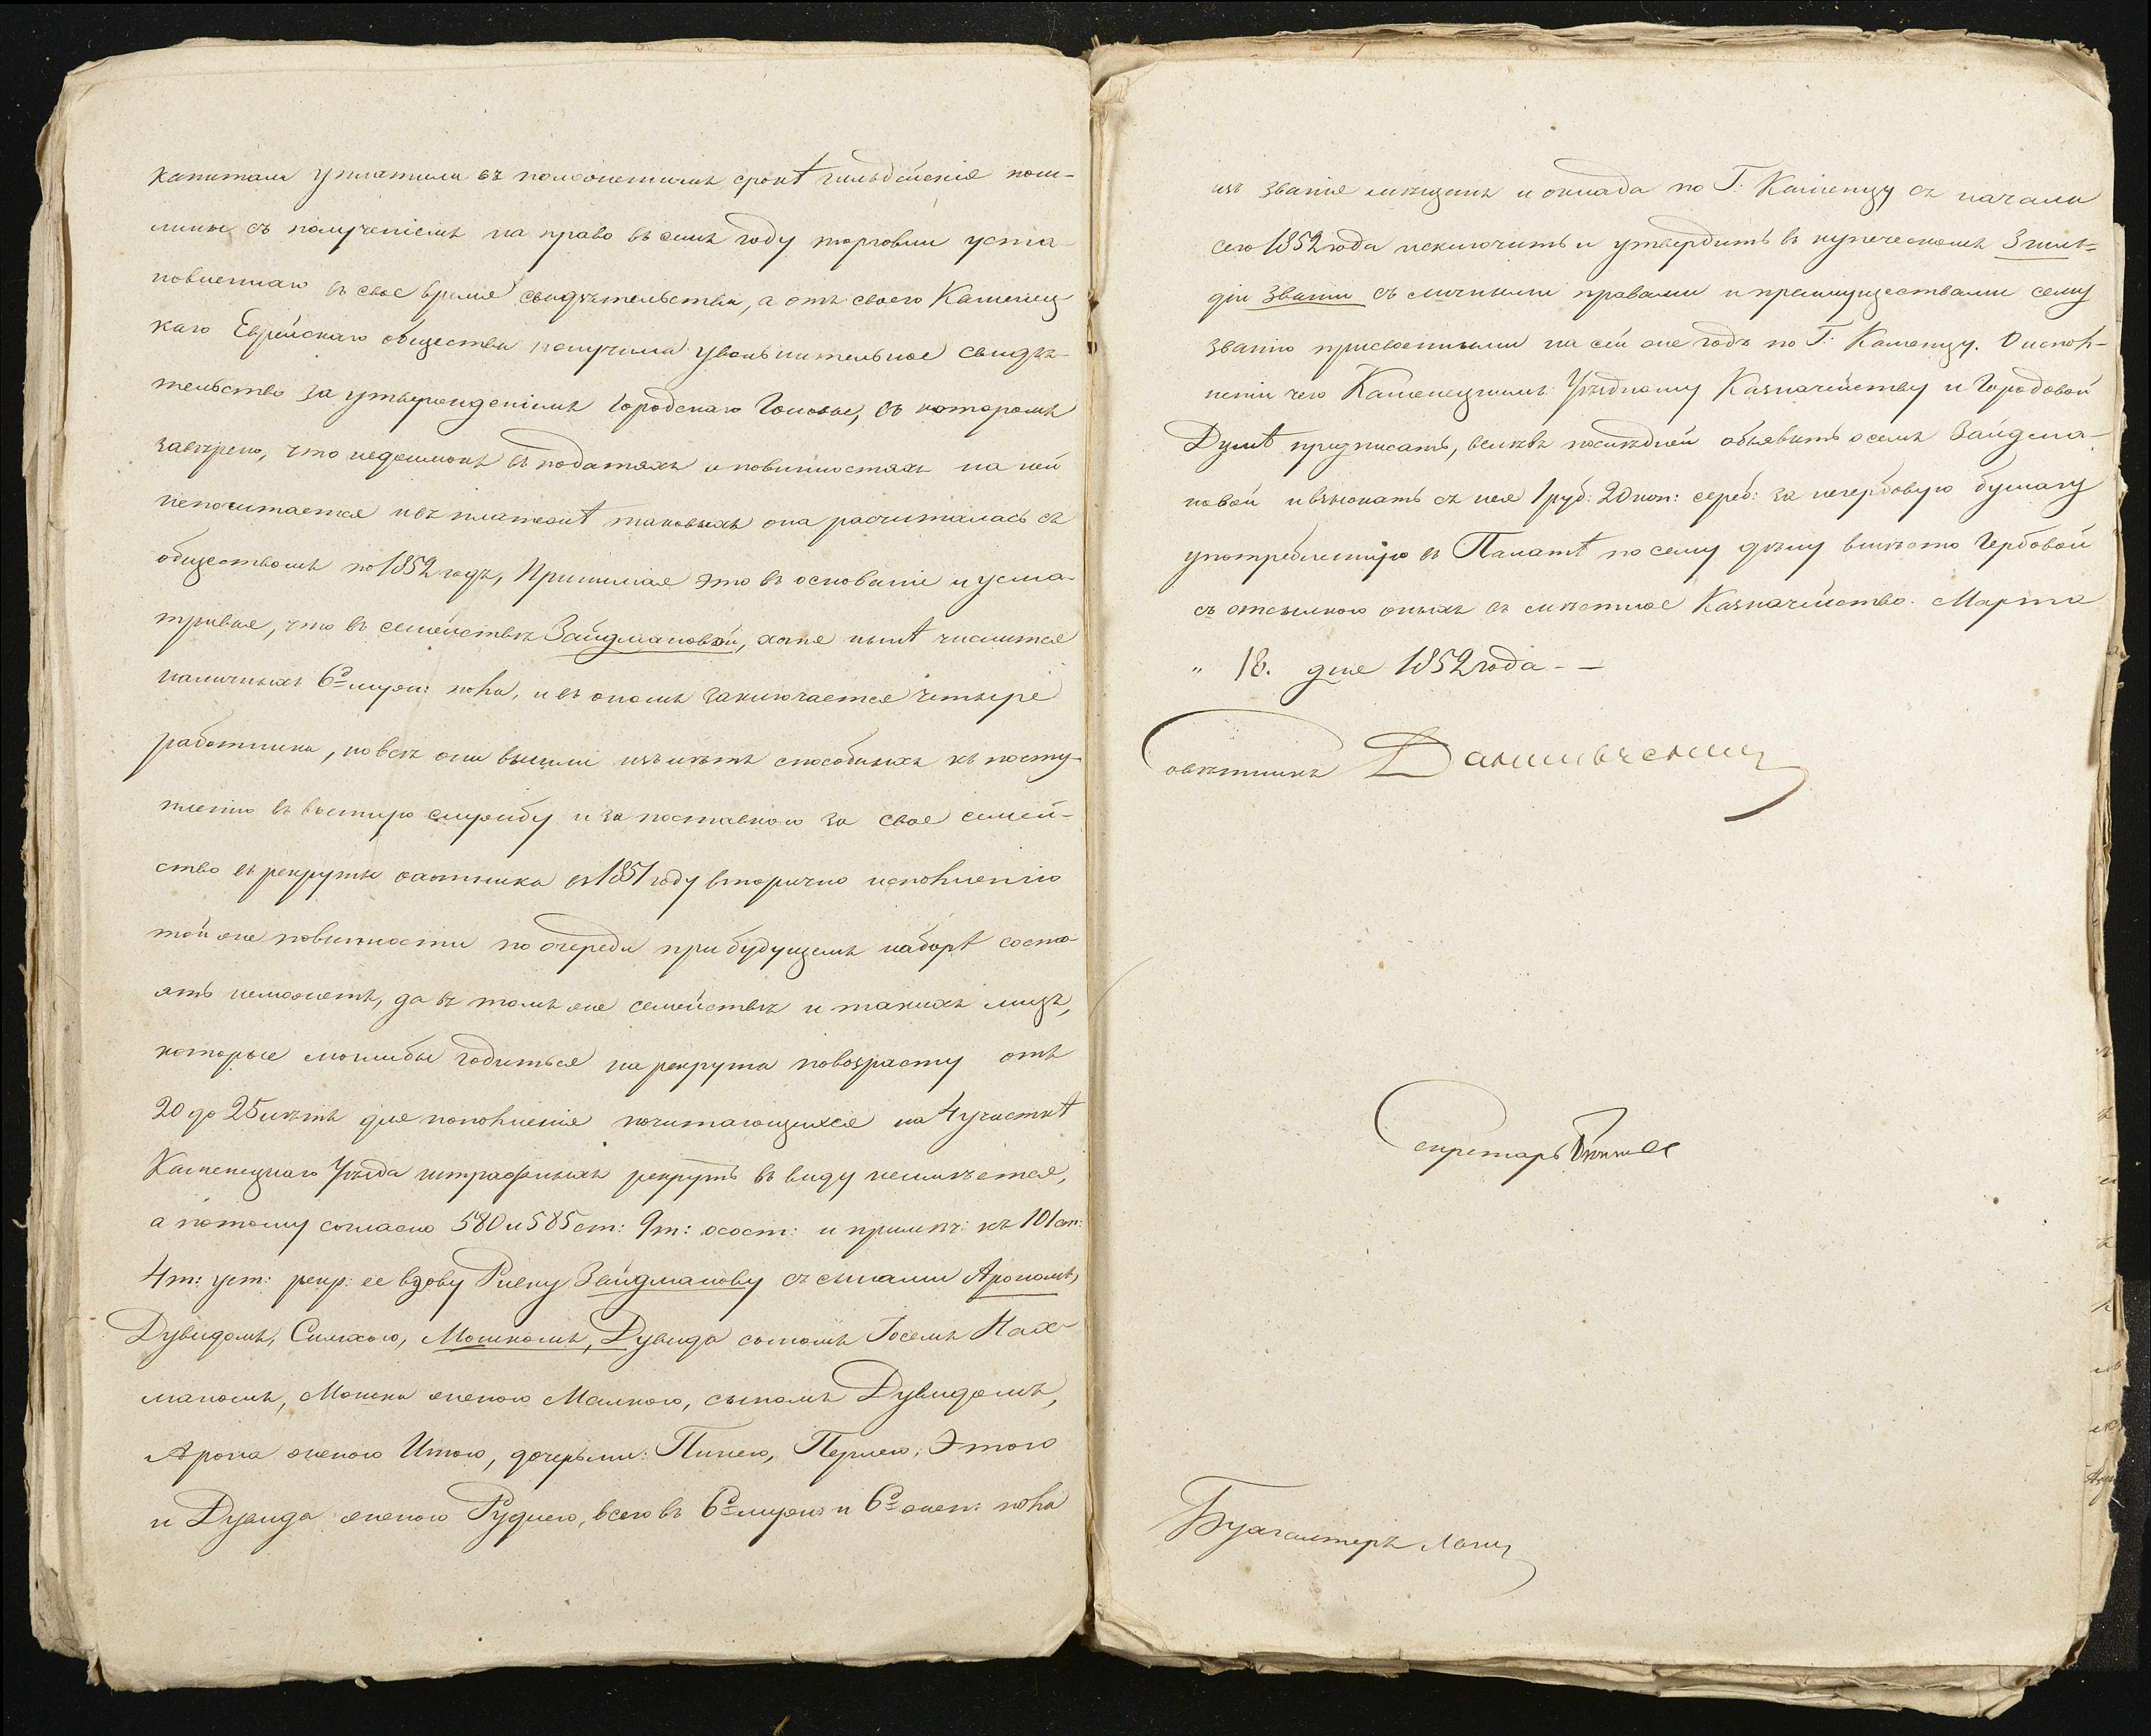 капитали уплатила въ положеномъ срокѣ гильдейскія пош-
лины съ полученіемъ на право въ семъ году торговли уста-
новленнаго въ свое время свидѣтельства, а отъ своего Каменец-
каго Еврейскаго общества получила увольнительное свидѣ-
тельство за утвержденіемъ Городскаго Головы, въ которомъ
завѣрено, что недоимокъ въ податяхъ и повинностяхъ на ней
непочитается и въ платежѣ таковыхъ она расчиталась съ
обществомъ по 1852 годъ, Принимая это въ основаніе и усма-
тривая, что въ семействѣ Зайдмановой, хотя нынѣ числится
наличныхъ 6ъ мужс: пола, и въ ономъ заключается четыре
работника, но всѣ они вышли изъ лѣтъ способныхъ къ посту-
пленію въ военную службу и за поставкою за свое семей-
ство въ рекруты охотника въ 1851 году вторично исполненію
той же повинности по очереди при будущемъ наборѣ состо-
ять неможетъ, да въ томъ же семействѣ и такихъ лицъ,
которые моглибы годиться на рекрута повозрасту отъ
20 до 25 лѣтъ для пополненія почитающихся на 4 участкѣ
Каменецкаго Уѣзда штрафныхъ рекрутъ въ виду неимѣется,
а потому согласно 580 и 585 ст: 9 т: о сост: и примѣч: къ 101 ст:
4 т: уст: рекр: ее вдову Ривку Зайдманову съ сынами Арономъ,
Дувидомъ, Симхою, Мошкомъ, Дувида сыномъ Іосемъ Нах-
маномъ, Мошка женою Малкою, сыномъ Дувидомъ,
Арона женою Итою, дочерьми: Пинею, Перлею, Этою
и Дувида женою Рудлею, всего въ 6ъ мужс: и 6ъ жен: пола
изъ званія мѣщанъ и оклада по Г: Каменцу съ начала
сего 1852 года исключить и утвердить въ купеческомъ 3 гиль-
діи званіи съ личными правами и преимуществами сему
званію присвоенными на сей же годъ по Г: Каменцу. О испол-
неніи чего Каменецкимъ Уѣздному Казначейству и Городовой
Думѣ предписать, велѣвъ послѣдней объявить о семъ Зайдма-
новой и взыскать съ нея 1 руб: 20 коп: сереб: за негербовую бумагу
употребленную въ Палатѣ по сему дѣлу вмѣсто Гербовой
съ отсылкою оныхъ въ мѣстное Казначейство. Марта
" 18. дня 1852 года -–
Совѣтникъ
Секретарь
Бухгалтеръ